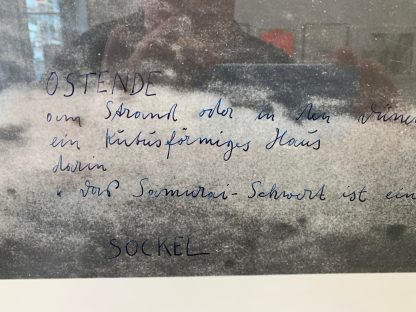 OSTENDE
am Strand oder in den Dünen
ein kubusförmiges Haus
darin
" das Samurai-Schwert ist ein
SOCKEL